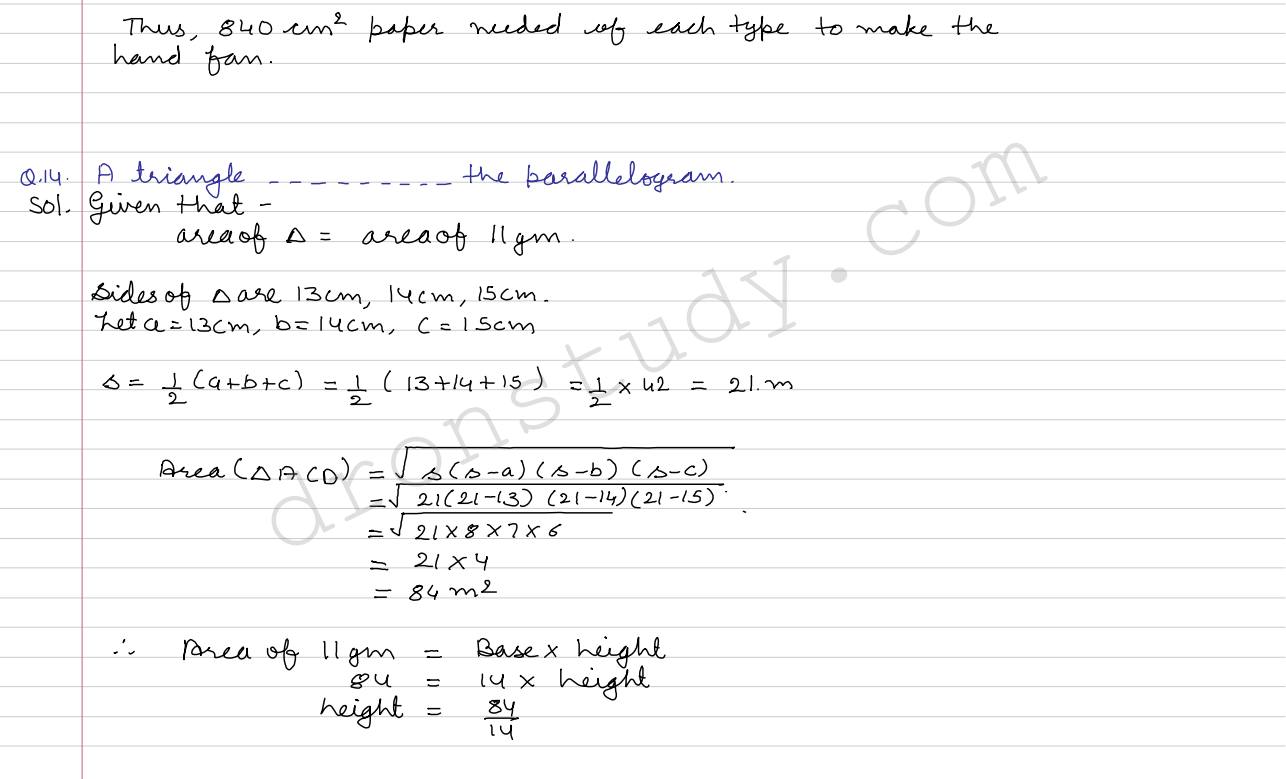 Thus, 840 cm² paper needed of each type to make the
hand fan.
Q.14. A triangle --------- the parallelogram.
Sol. Given that -
area of Δ = area of 11gm.
Sides of Δ are 13cm, 14cm, 15cm.
Let a = 13cm, b = 14cm, c = 15cm
s = 1/2 (a+b+c) = 1/2 (13+14+15) = 1/2 × 42 = 21.m
Area (ΔACD) = √s(s-a)(s-b)(s-c)
= √21(21-13) (21-14)(21-15)
= √21×8×7×6
= 21×4
= 84 m²
∴ Area of 11gm = Base × height
84 = 14 × height
height = 84/14
dronstudy.com